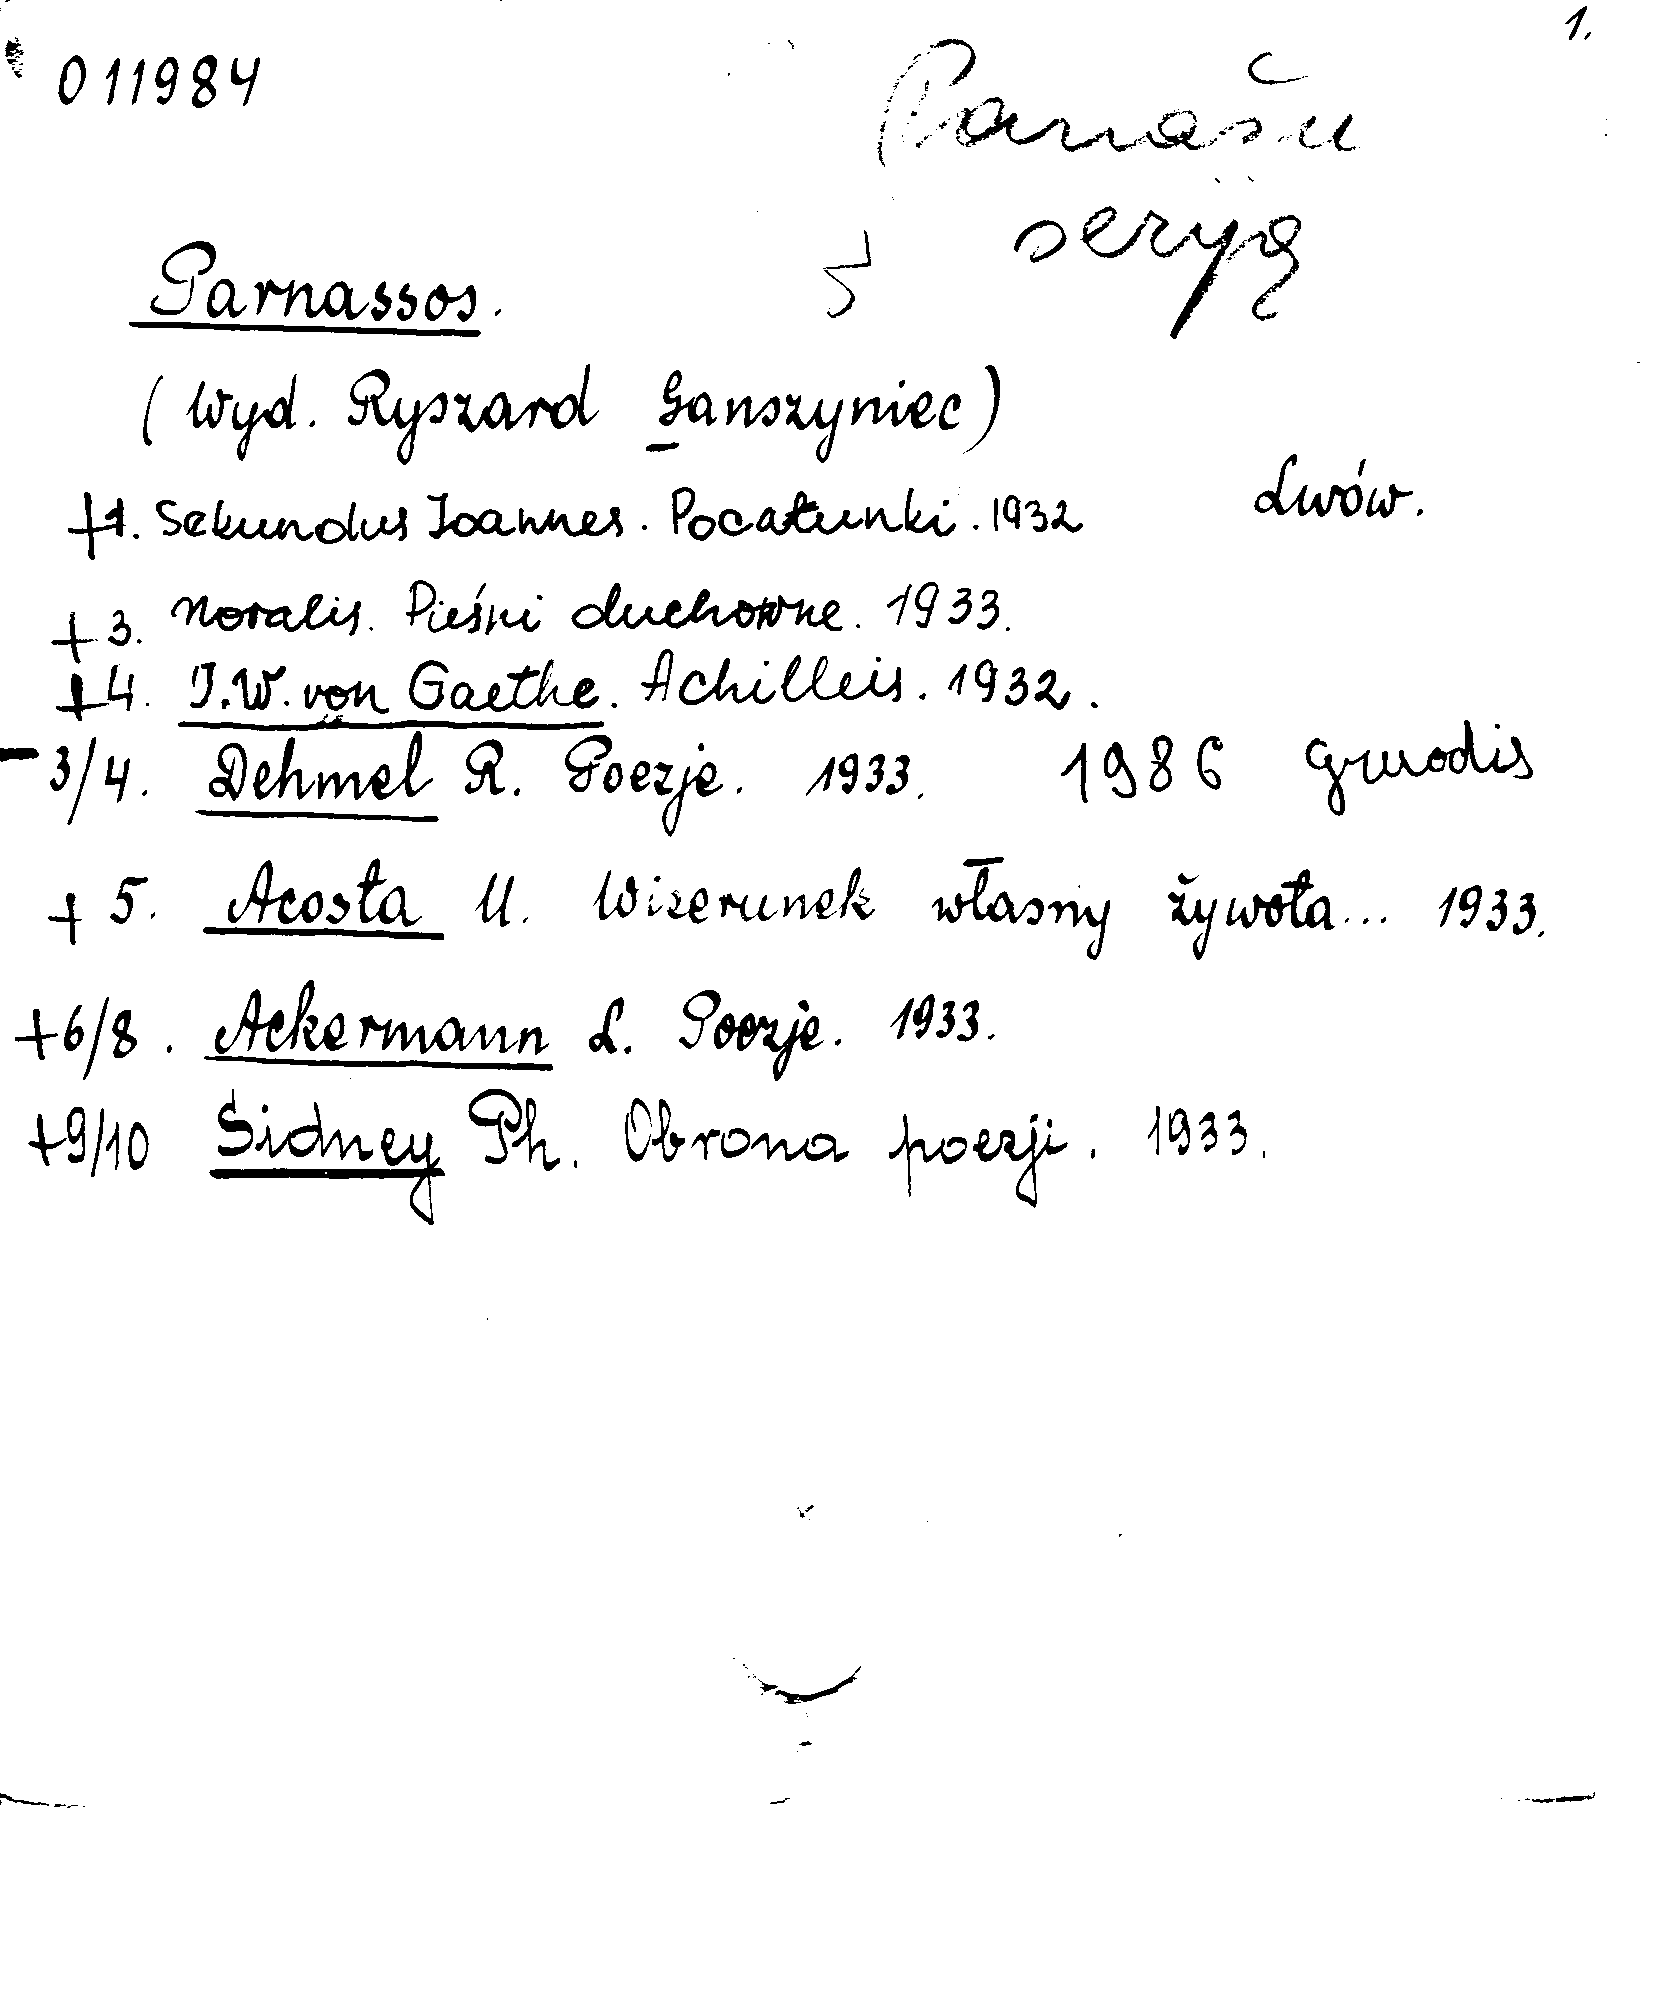 1.
011984
Parnassos.
(Wyd. Ryszard Ganszyniec)
Lwów.
+1. Sekundus Joannes. Pocałunki. 1932
+3. Noralis. Pieśni duchowne. 1933.
+4. J.W. von Gaethe. Achilleis. 1932.
- 3/4. Dehmel R. Poezje. 1933. 1986 gruodis
+ 5. Acosta U. Wizerunek własny żywota... 1933.
+6/8. Ackermann L. Poezje. 1933.
+9/10 Sidney Ph. Obrona poezji. 1933.